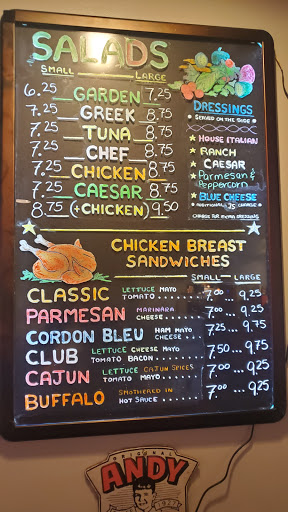 SALADS
SMALL LARGE
6.25 GARDEN 7.25
7.25 GREEK 8.75
7.25 TUNA 8.75
7.25 CHEF 8.75
7.25 CHICKEN 8.75
7.25 CAESAR 8.75
8.75 (+CHICKEN) 9.50
DRESSINGS
SERVED ON THE SIDE
HOUSE ITALIAN
RANCH
CAESAR
PARMESAN &
PEPPERCORN
BLUE CHEESE
CHARGE FOR EXTRA DRESSING
CHICKEN BREAST
SANDWICHES
SMALL LARGE
CLASSIC LETTUCE MAYO TOMATO 7.00 ... 9.25
PARMESAN MARINARA CHEESE 7.00 ... 9.25
CORDON BLEU HAM MAYO CHEESE 7.25 ... 9.75
CLUB LETTUCE CHEESE MAYO TOMATO BACON 7.50 ... 9.75
CAJUN LETTUCE CAJUN SPICES TOMATO MAYO 7.00 ... 9.25
BUFFALO SMOTHERED IN HOT SAUCE 7.00 ... 9.25
ORIGINAL
ANDY